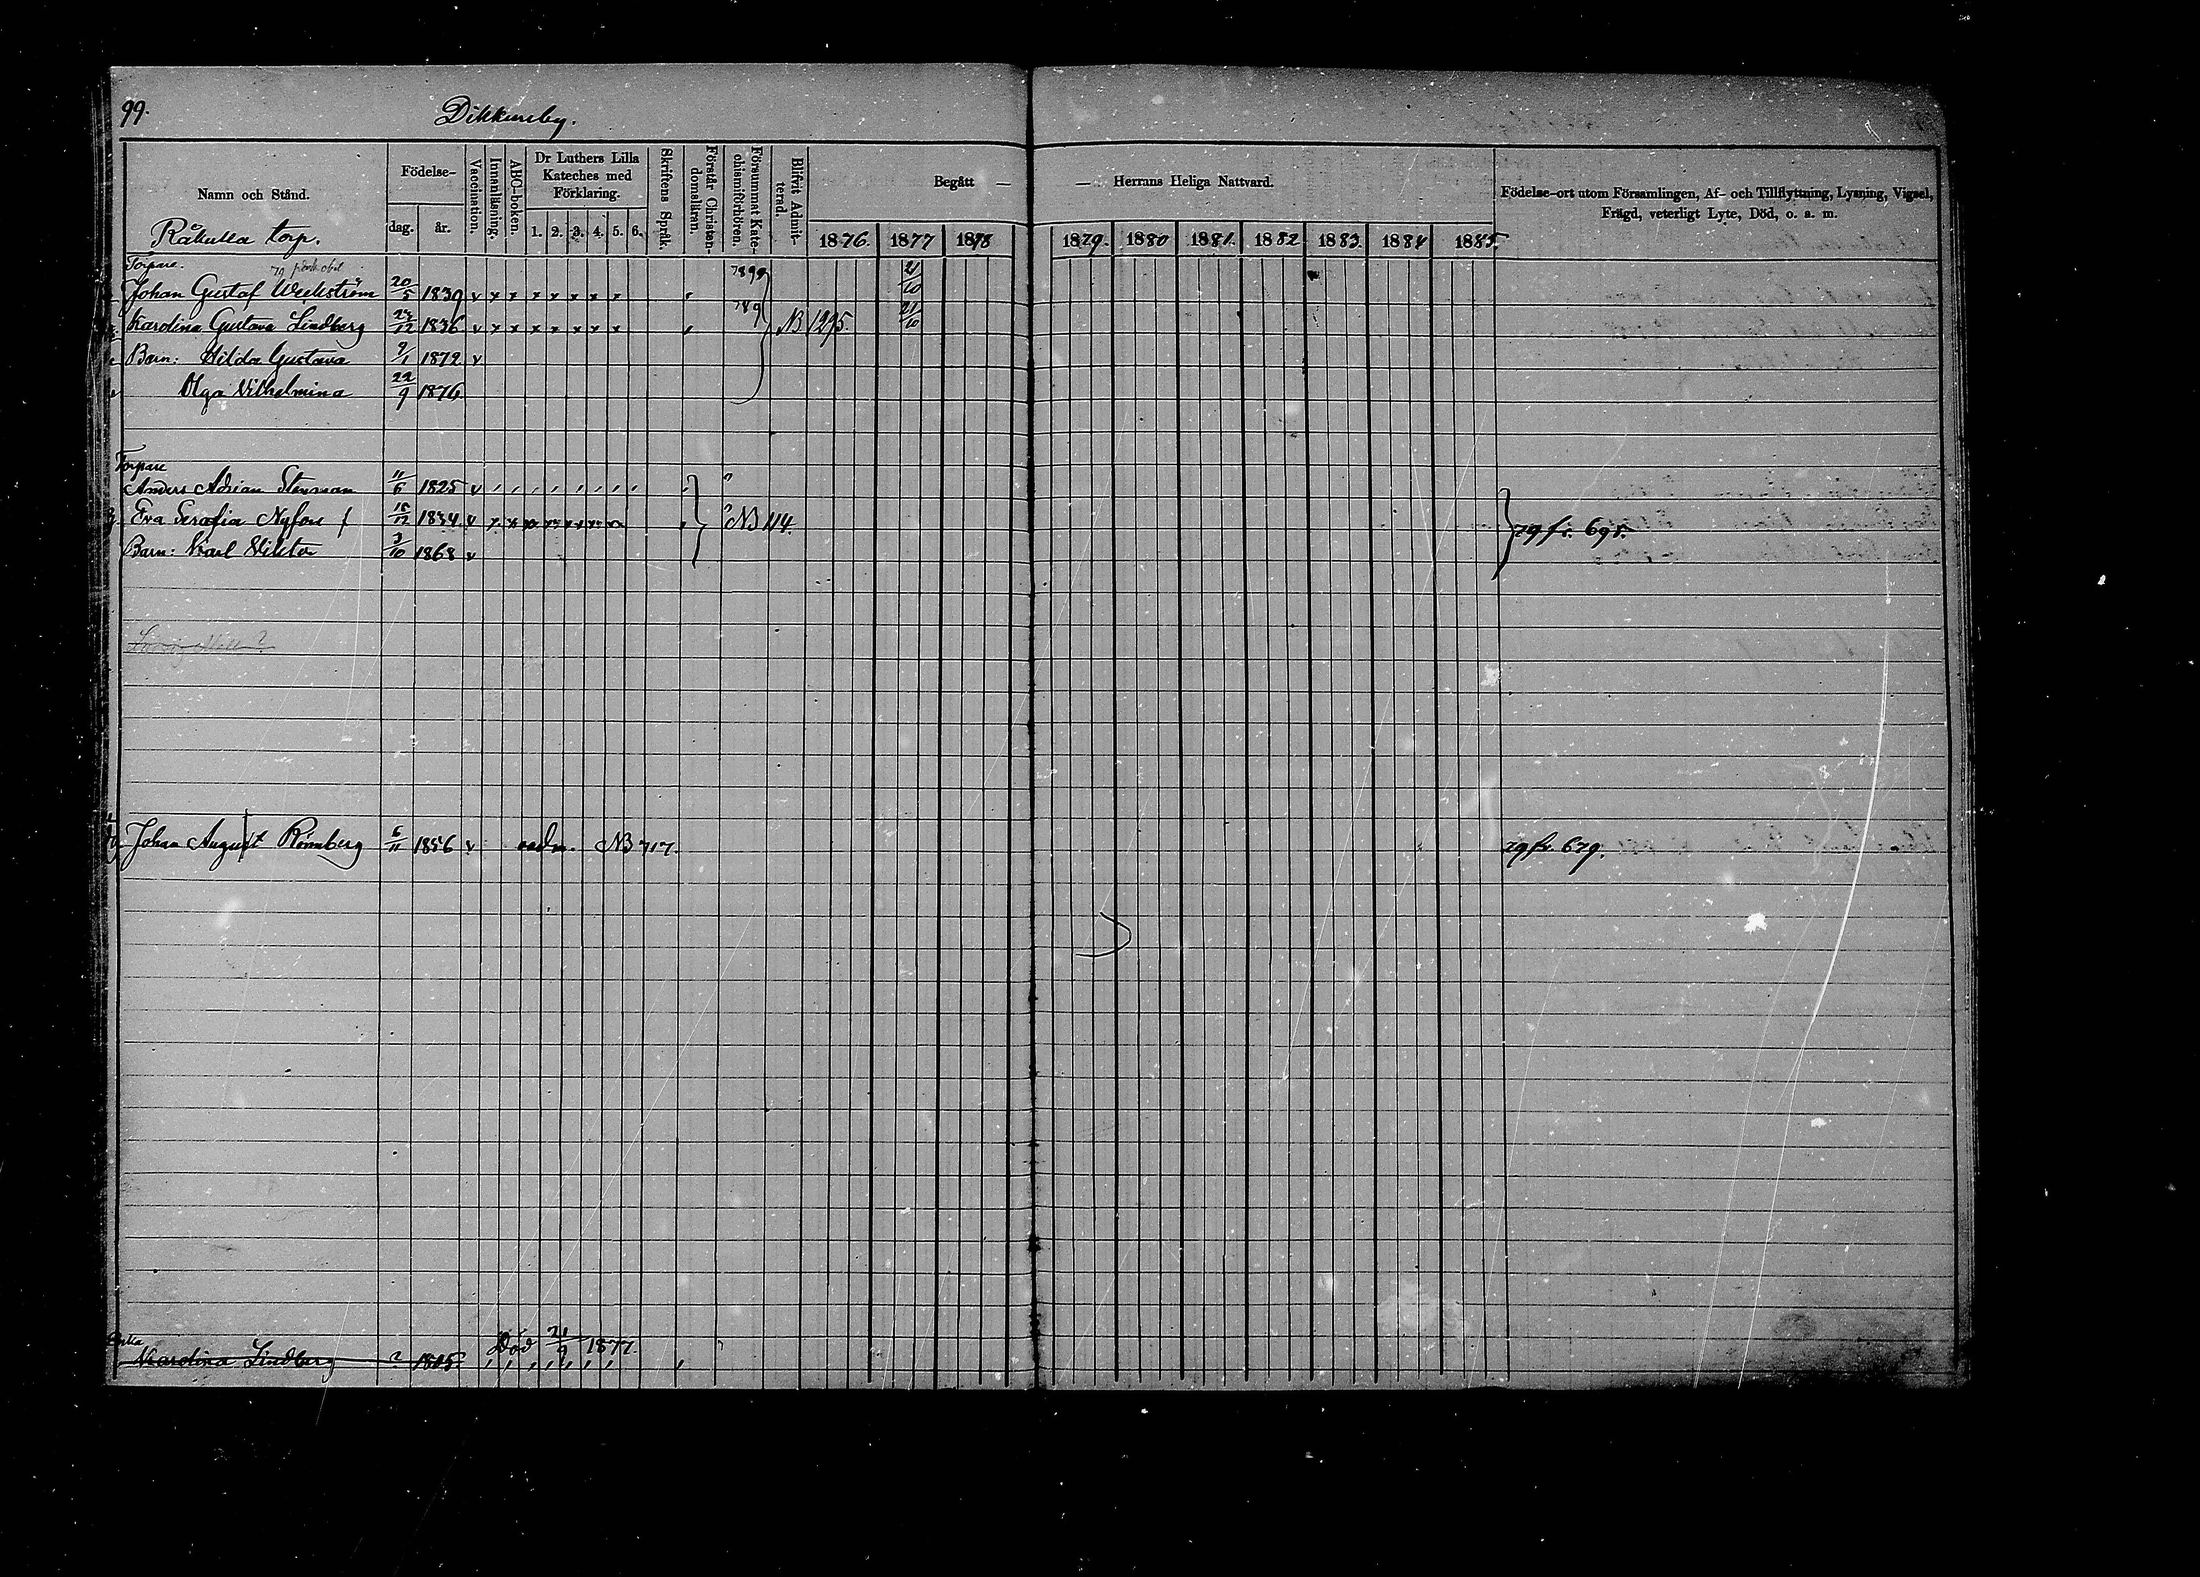 99. Dikkursby.
Namn och Stånd. Födelse- dag. år. Vaccination. Innanläsning. ABC-boken. Dr Luthers Lilla Kateches med Förklaring. 1. 2. 3. 4. 5. 6. Skriftens Språk. Förstår Christendomsläran. Försummat Katechismiförhören. Blifvit Admitterad. Begått — — Herrans Heliga Nattvard. Födelse-ort utom Församlingen, Af- och Tillflyttning, Lysning, Vigsel, Frägd, veterligt Lyte, Död, o. a. m.
1876. 1877 1878 1879. 1880 1881. 1882 1883. 1884 1885.
Råkulla torp.
Torpare. 79
Johan Gustaf Weckström 20/5 1839 v x x x x x x x 7899 21/10
Karolina Gustava Lindberg 12 1836 v x x x x x x x 789 NB 1295. 21/10
Barn: Hilda Gustava 9/1 1872 v
Olga Vilhelmina 22/9 1876
Torpare
Anders Adrian Stenman 11/6 1825 v
Eva Serafia Nyfors 12 1834 v x x x x x x x NB 114. 79 fr. 695.
Barn: Karl Viktor 3/10 1868 v
Johan August Rönnberg 6/11 1856 v oadm. NB 717. 79 fr. 679.
Död 21/9 1877.
Enka
Karolina Lindberg ? 1805